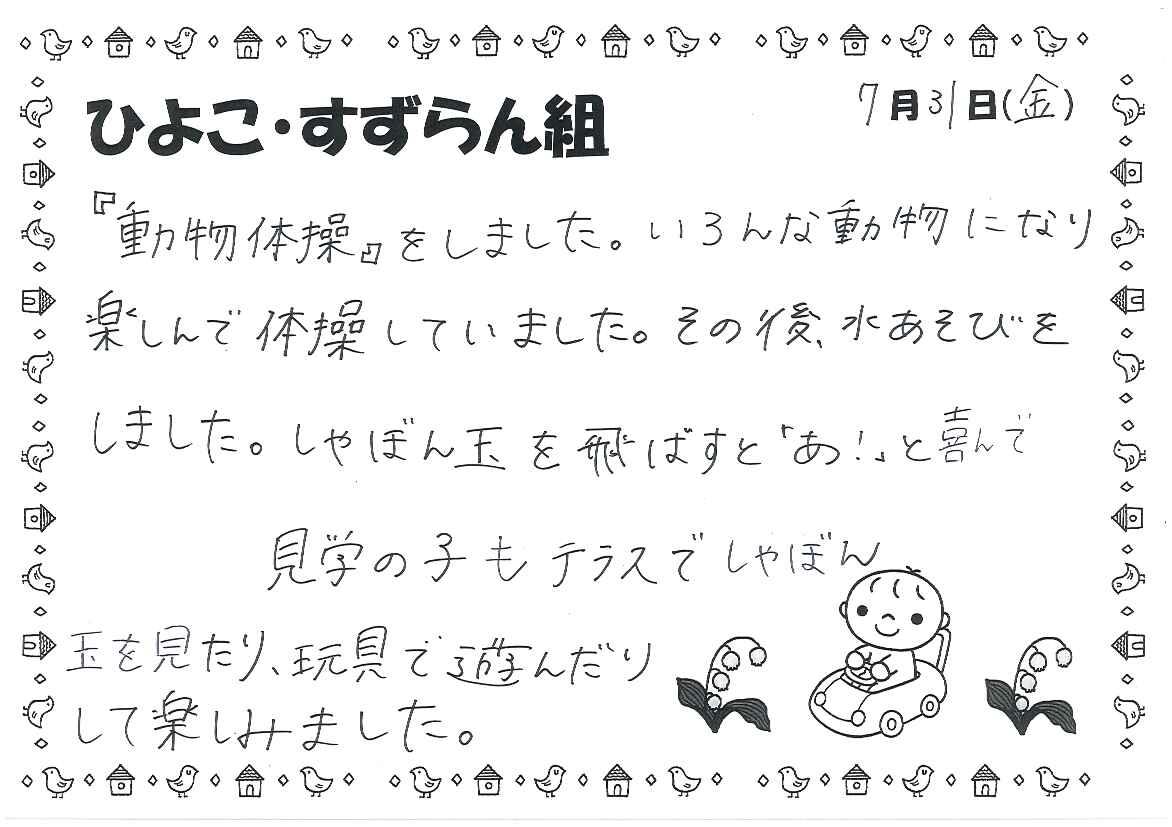 ひよこ・すずらん組
7月31日(金)
『動物体操』をしました。いろんな動物になり
楽しんで体操していました。その後、水あそびを
しました。しゃぼん玉を飛ばすと「あ!」と喜んで
見学の子もテラスでしゃぼん
玉を見たり、玩具で遊んだり
して楽しみました。